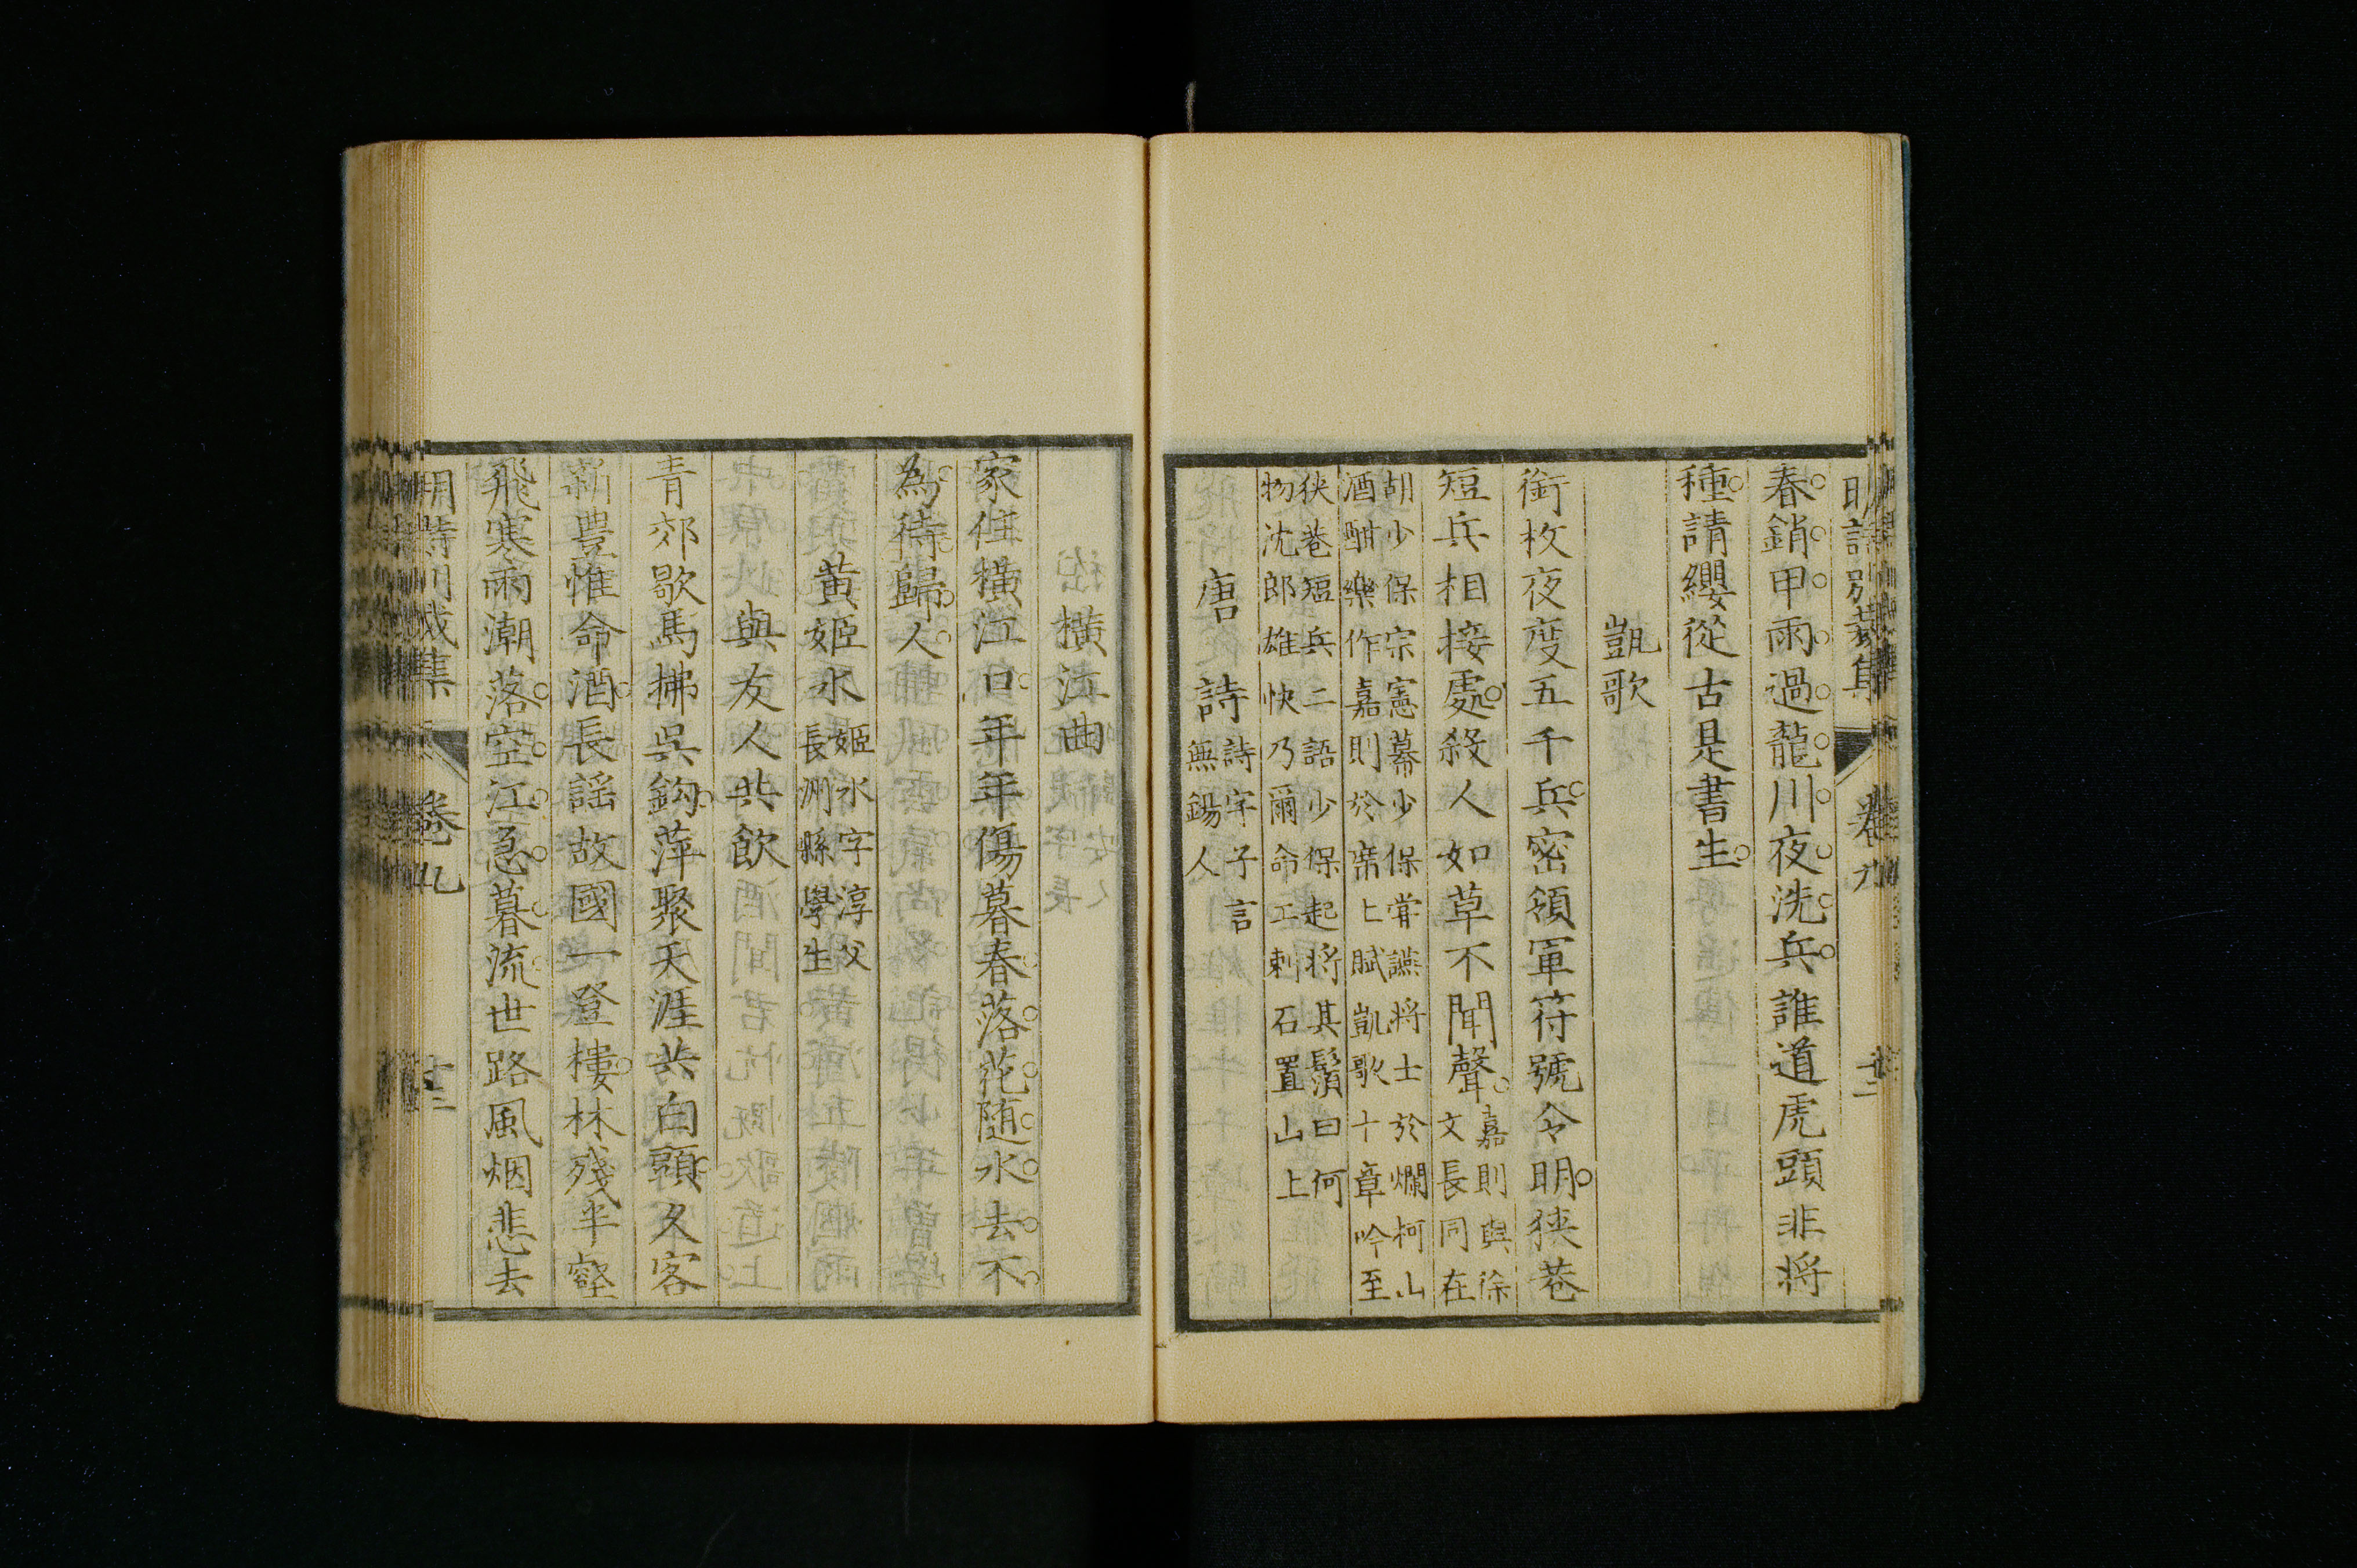 明詩別裁集 卷九 十二
春銷甲雨過龍川夜洗兵誰道虎頭非將
種請纓從古是書生
凱歌
銜枚夜度五千兵密領軍符號令明狹巷
短兵相接處殺人如草不聞聲
嘉則與徐
文長同在
胡少保宗憲幕少保嘗讌將士於爛柯山
酒酣樂作嘉則於席上賦凱歌十章吟至
狹巷短兵二語少保起捋其鬚曰何
物沈郎雄快乃爾命工刺石置山上
唐詩
詩字子言
無錫人
橫江曲
家住橫江口年年傷暮春落花随水去不
為待歸人
黃姬水
姬水字淳父
長洲縣學生
與友人共飲
青郊歇馬拂吳鈎萍聚天涯共白頭久客
新豊惟命酒長謡故國一登樓林殘半壑
飛寒雨潮落空江急暮流世路風烟悲去
明詩別裁集 卷九 十二